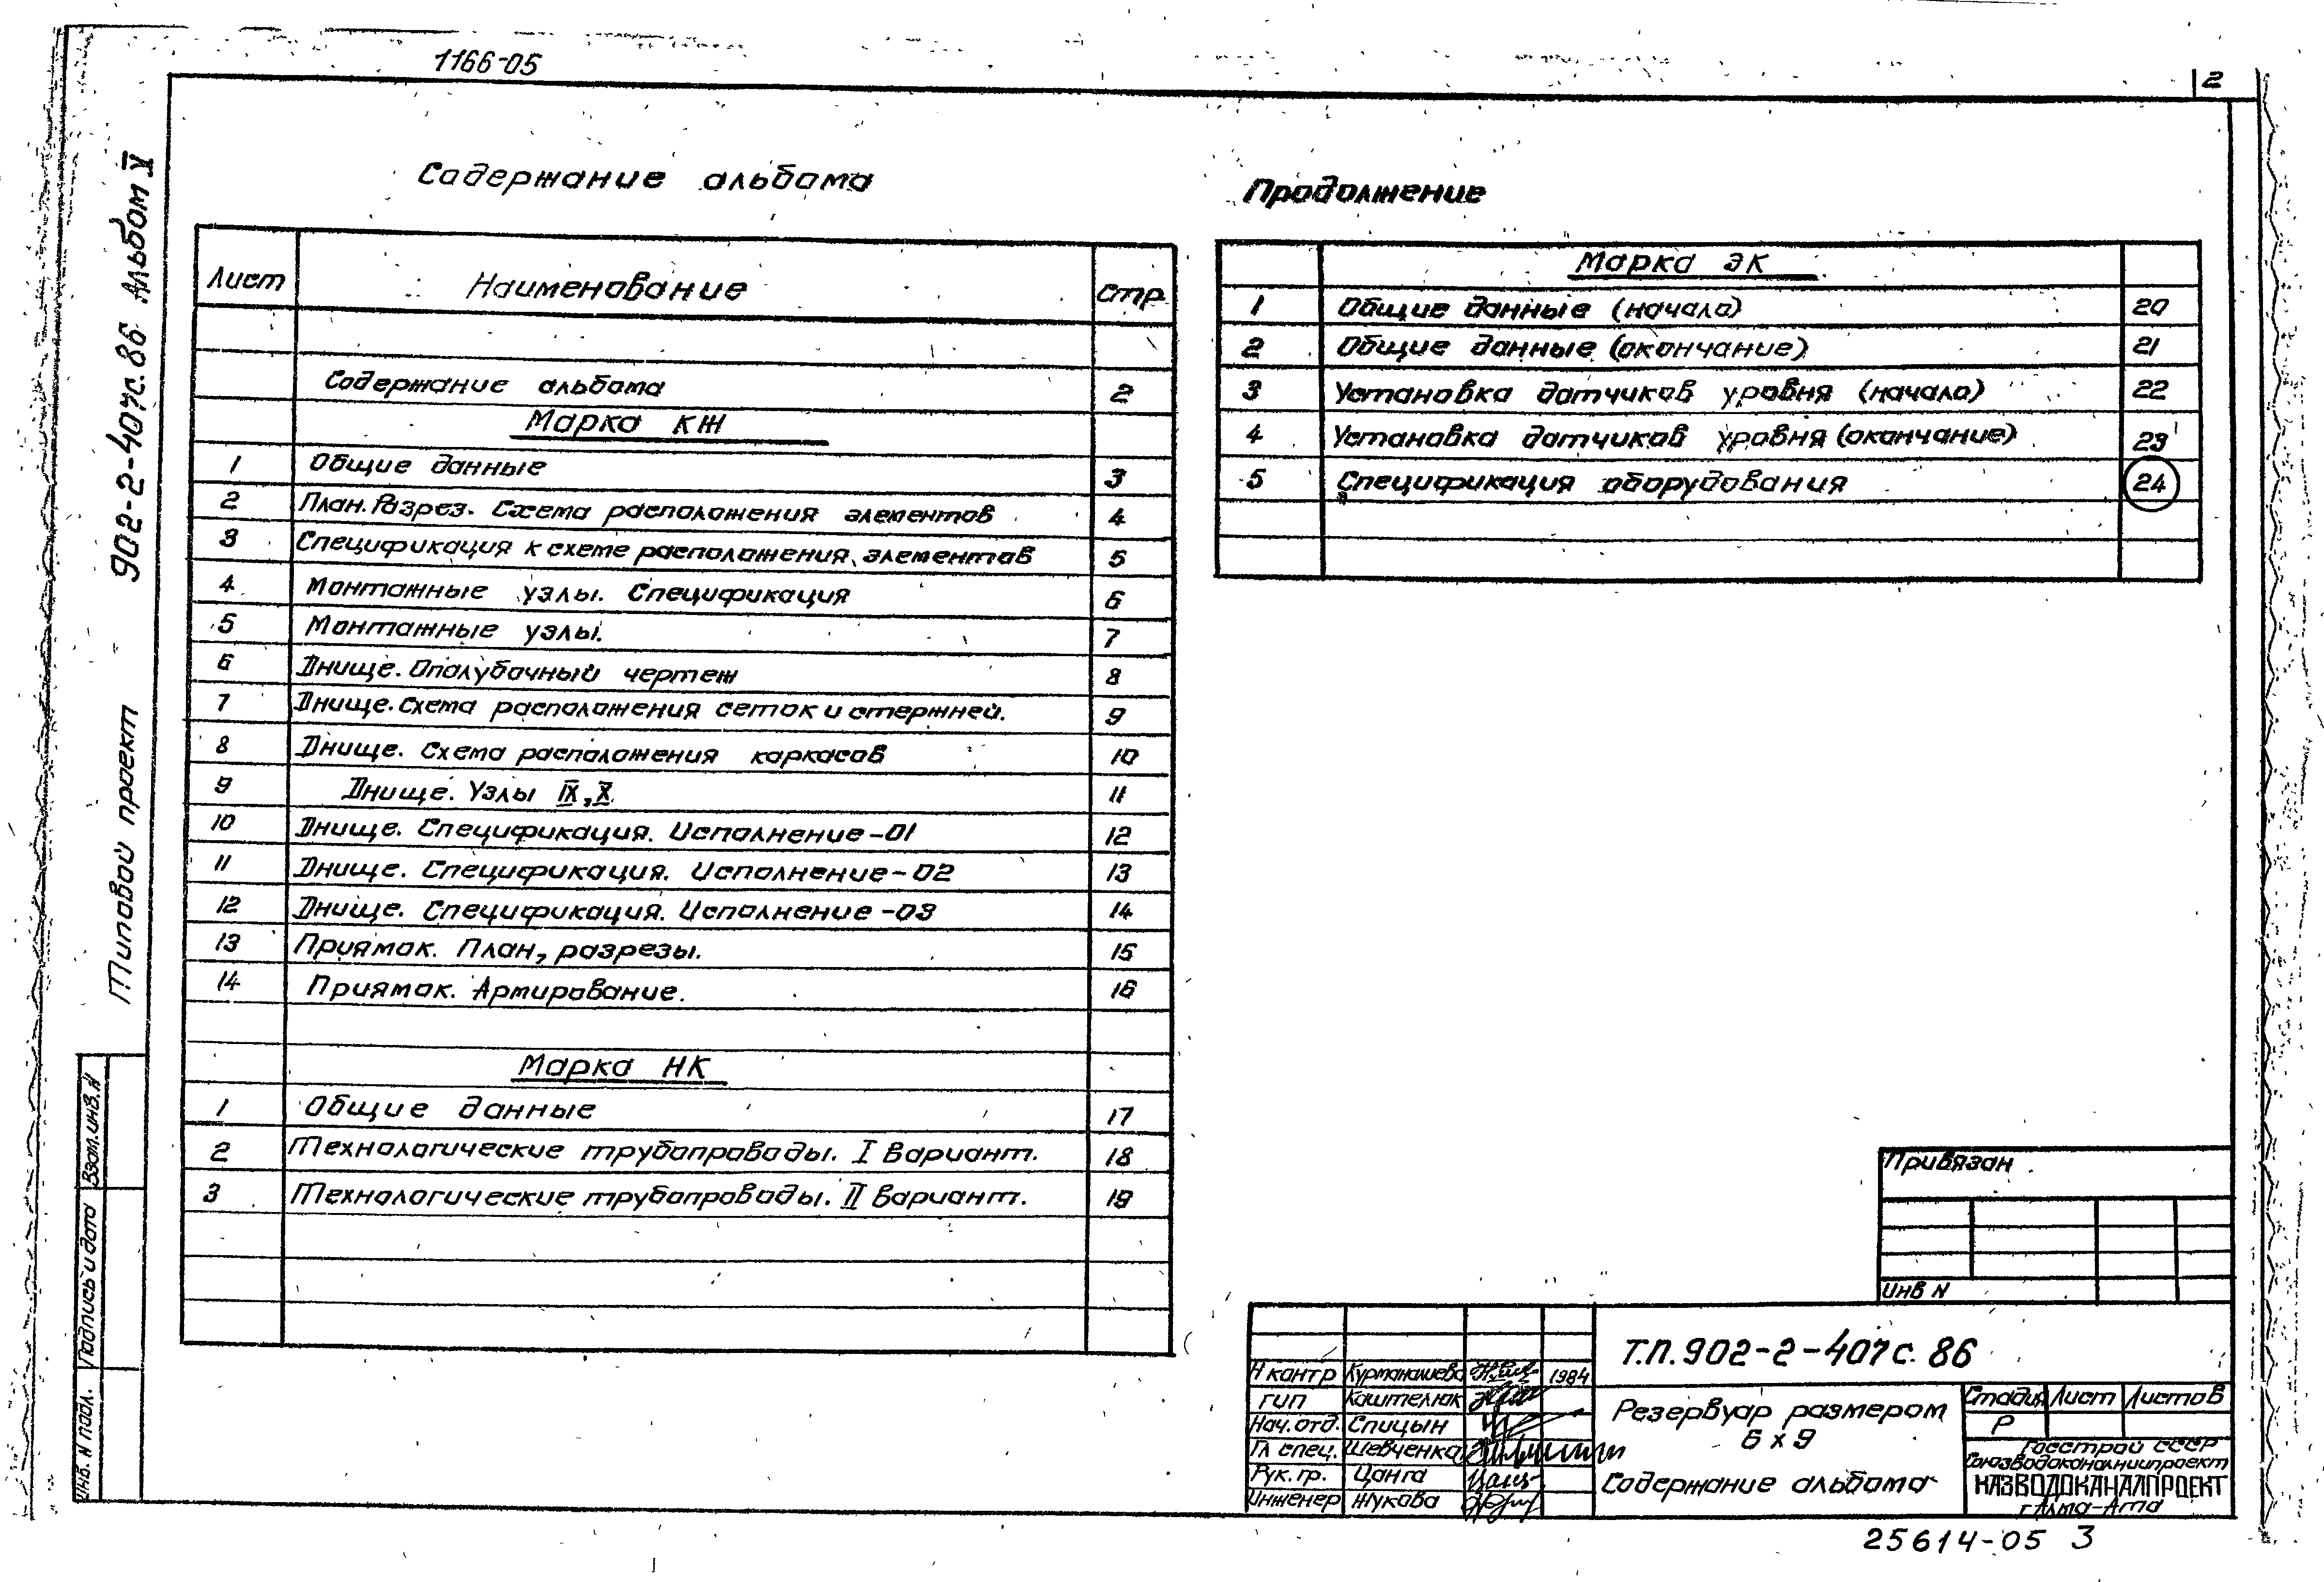 1166-05
2
Типовой проект 902-2-407с.86 Альбом V
Содержание альбома
Лист Наименование Стр
Содержание альбома 2
Марка КЖ
1 Общие данные 3
2 План. Разрез. Схема расположения элементов 4
3 Спецификация к схеме расположения элементов 5
4 Монтажные узлы. Спецификация 6
5 Монтажные узлы. 7
6 Днище. Опалубочный чертеж 8
7 Днище. Схема расположения сеток и стержней. 9
8 Днище. Схема расположения каркасов 10
9 Днище. Узлы IX, X. 11
10 Днище. Спецификация. Исполнение-01 12
11 Днище. Спецификация. Исполнение-02 13
12 Днище. Спецификация. Исполнение-03 14
13 Приямок. План, разрезы. 15
14 Приямок. Армирование. 16
Марка НК
1 Общие данные 17
2 Технологические трубопроводы. I Вариант. 18
3 Технологические трубопроводы. II Вариант. 19
Продолжение
Марка ЭК
1 Общие данные (начало) 20
2 Общие данные (окончание) 21
3 Установка датчиков уровня (начало) 22
4 Установка датчиков уровня (окончание) 23
5 Спецификация оборудования 24
Взам.инв.N
Подпись и дата
Инв. N подл.
Привязан
Инв N
Т.П.902-2-407с.86
Н контр Курманашева 1984
ГИП Каштелюк
Нач.отд. Спицын
Гл спец. Шевченко
Рук.гр. Цанга
Инженер Жукова
Резервуар размером
6х9
Содержание альбома
Стадия Лист Листов
Р
Госстрой СССР
Союзводоканалниипроект
КАЗВОДОКАНАЛПРОЕКТ
г.Алма-Ата
25614-05 3